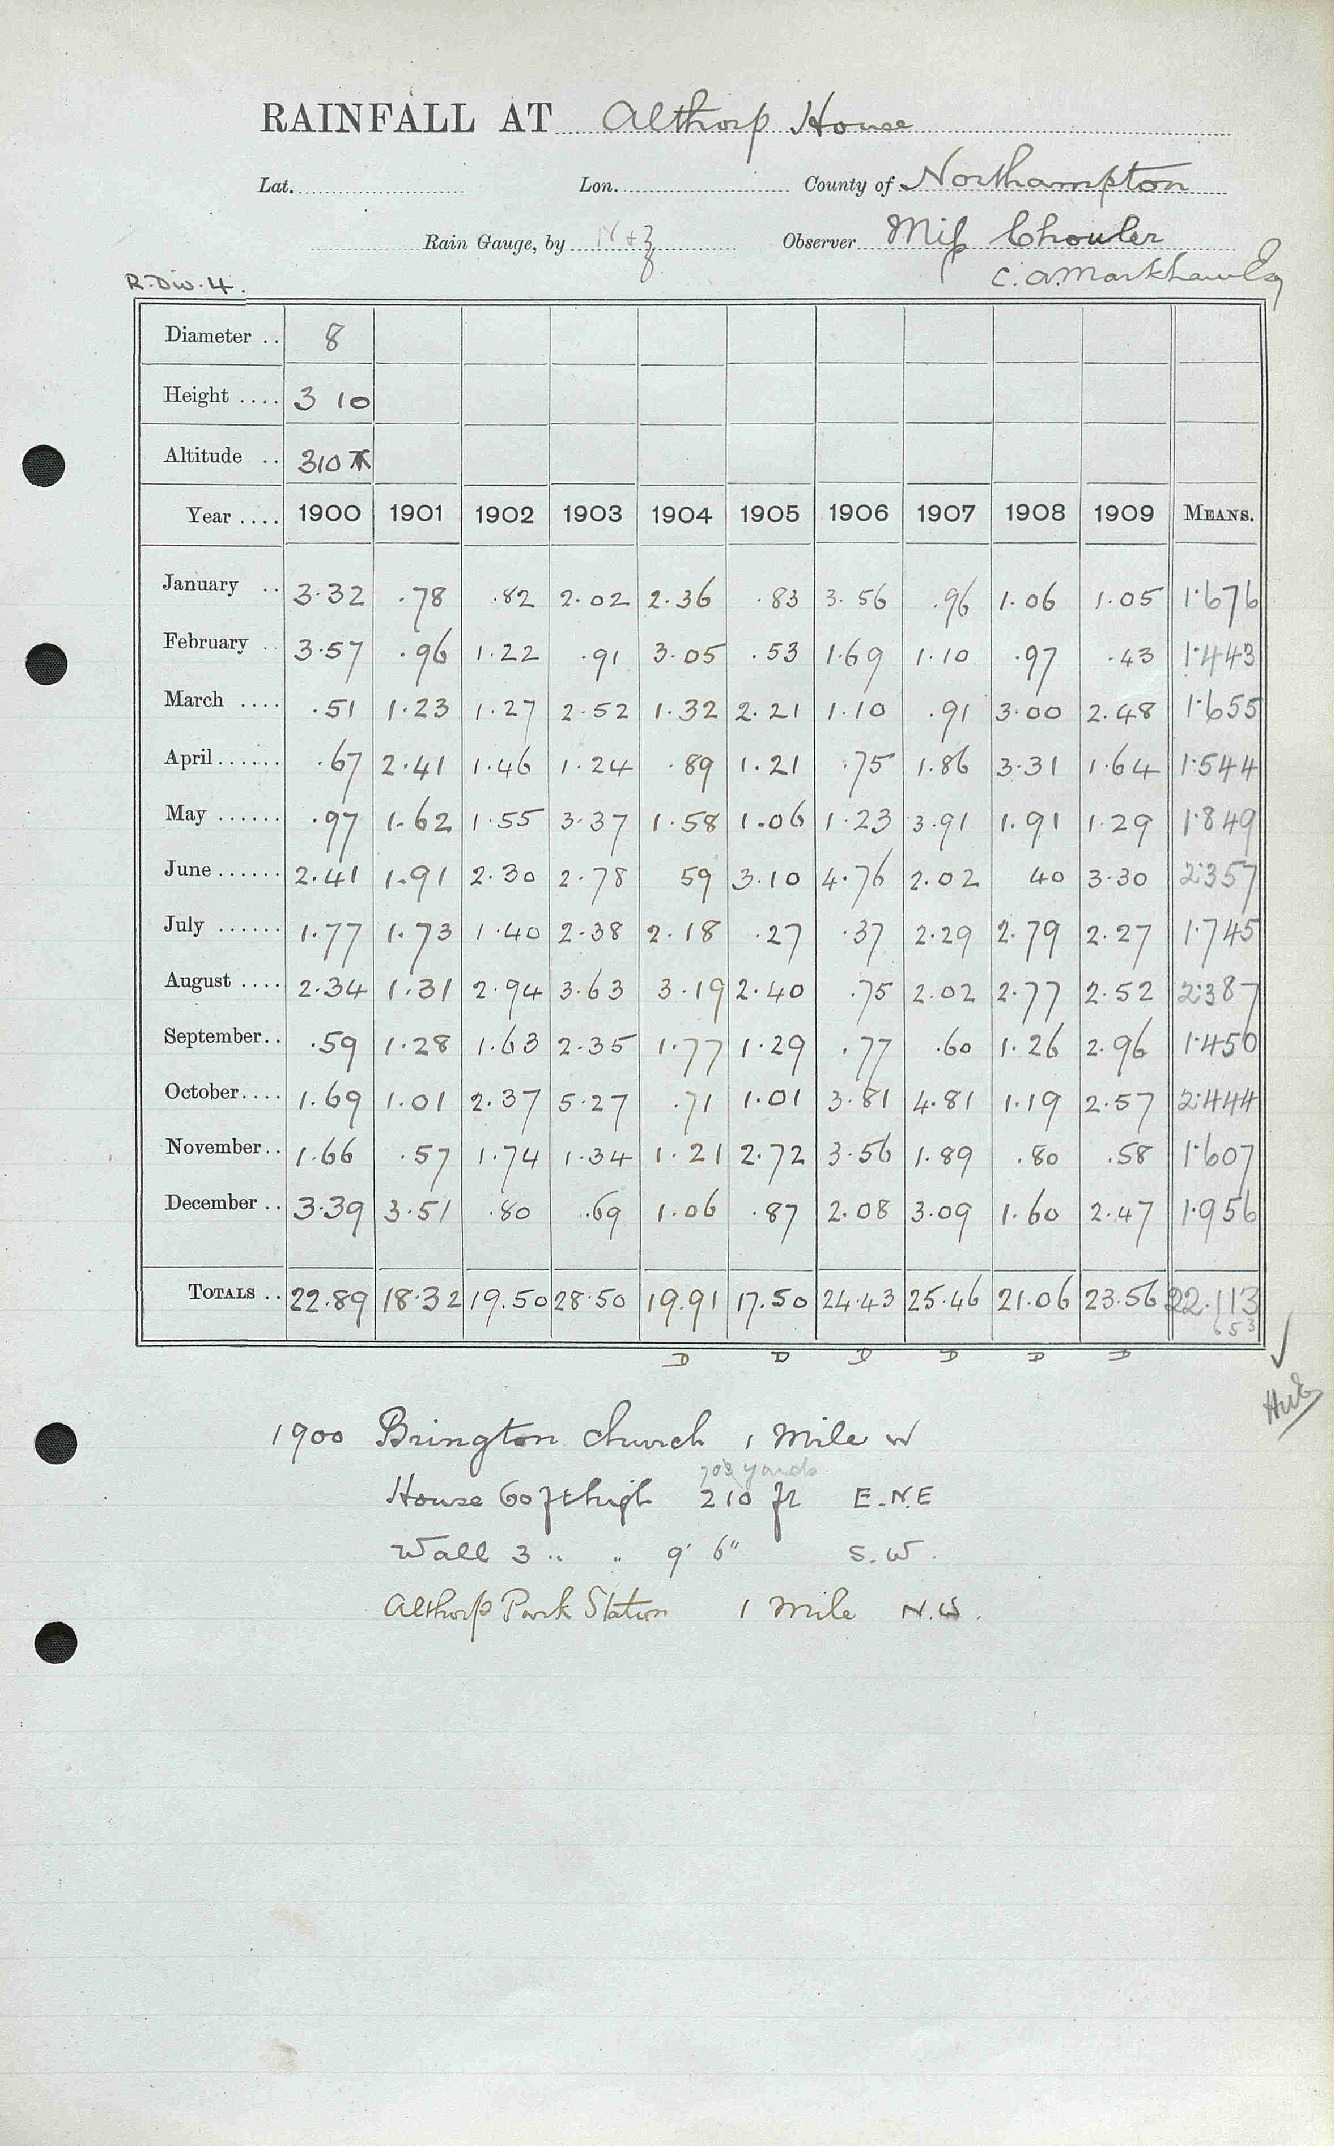 RAINFALL AT Althorp House
Lat. Lon. County of Northampton
Rain Gauge, by N & Z Observer Miss Chouler
C. A. Markham Esq
R. Div. 4.
Diameter .. 8
Height .... 3 10
Altitude .. 310
Year .... 1900 1901 1902 1903 1904 1905 1906 1907 1908 1909 MEANS.
January .. 3.32 .78 .82 2.02 2.36 .83 3.56 .96 1.06 1.05 1.676
February .. 3.57 .96 1.22 .91 3.05 .53 1.69 1.10 .97 .43 1.443
March .... .51 1.23 1.27 2.52 1.32 2.21 1.10 .91 3.00 2.48 1.655
April ...... .67 2.41 1.46 1.24 .89 1.21 .75 1.86 3.31 1.64 1.544
May ...... .97 1.62 1.55 3.37 1.58 1.06 1.23 3.91 1.91 1.29 1.849
June ...... 2.41 1.91 2.30 2.78 59 3.10 4.76 2.02 40 3.30 2.357
July ...... 1.77 1.73 1.40 2.38 2.18 .27 .37 2.29 2.79 2.27 1.745
August .... 2.34 1.31 2.94 3.63 3.19 2.40 .75 2.02 2.77 2.52 2.387
September .. .59 1.28 1.63 2.35 1.77 1.29 .77 .60 1.26 2.96 1.450
October .... 1.69 1.01 2.37 5.27 .71 1.01 3.81 4.81 1.19 2.57 2.444
November .. 1.66 .57 1.74 1.34 1.21 2.72 3.56 1.89 .80 .58 1.607
December .. 3.39 3.51 .80 .69 1.06 .87 2.08 3.09 1.60 2.47 1.956
TOTALS .. 22.89 18.32 19.50 28.50 19.91 17.50 24.43 25.46 21.06 23.56 22.113
653
D D D D D D
1900 Brington Church 1 Mile W
yards
House 60 ft high 210 ft E.N.E
Wall 3 " " 9' 6" S.W.
Althorp Park Station 1 Mile N.W.